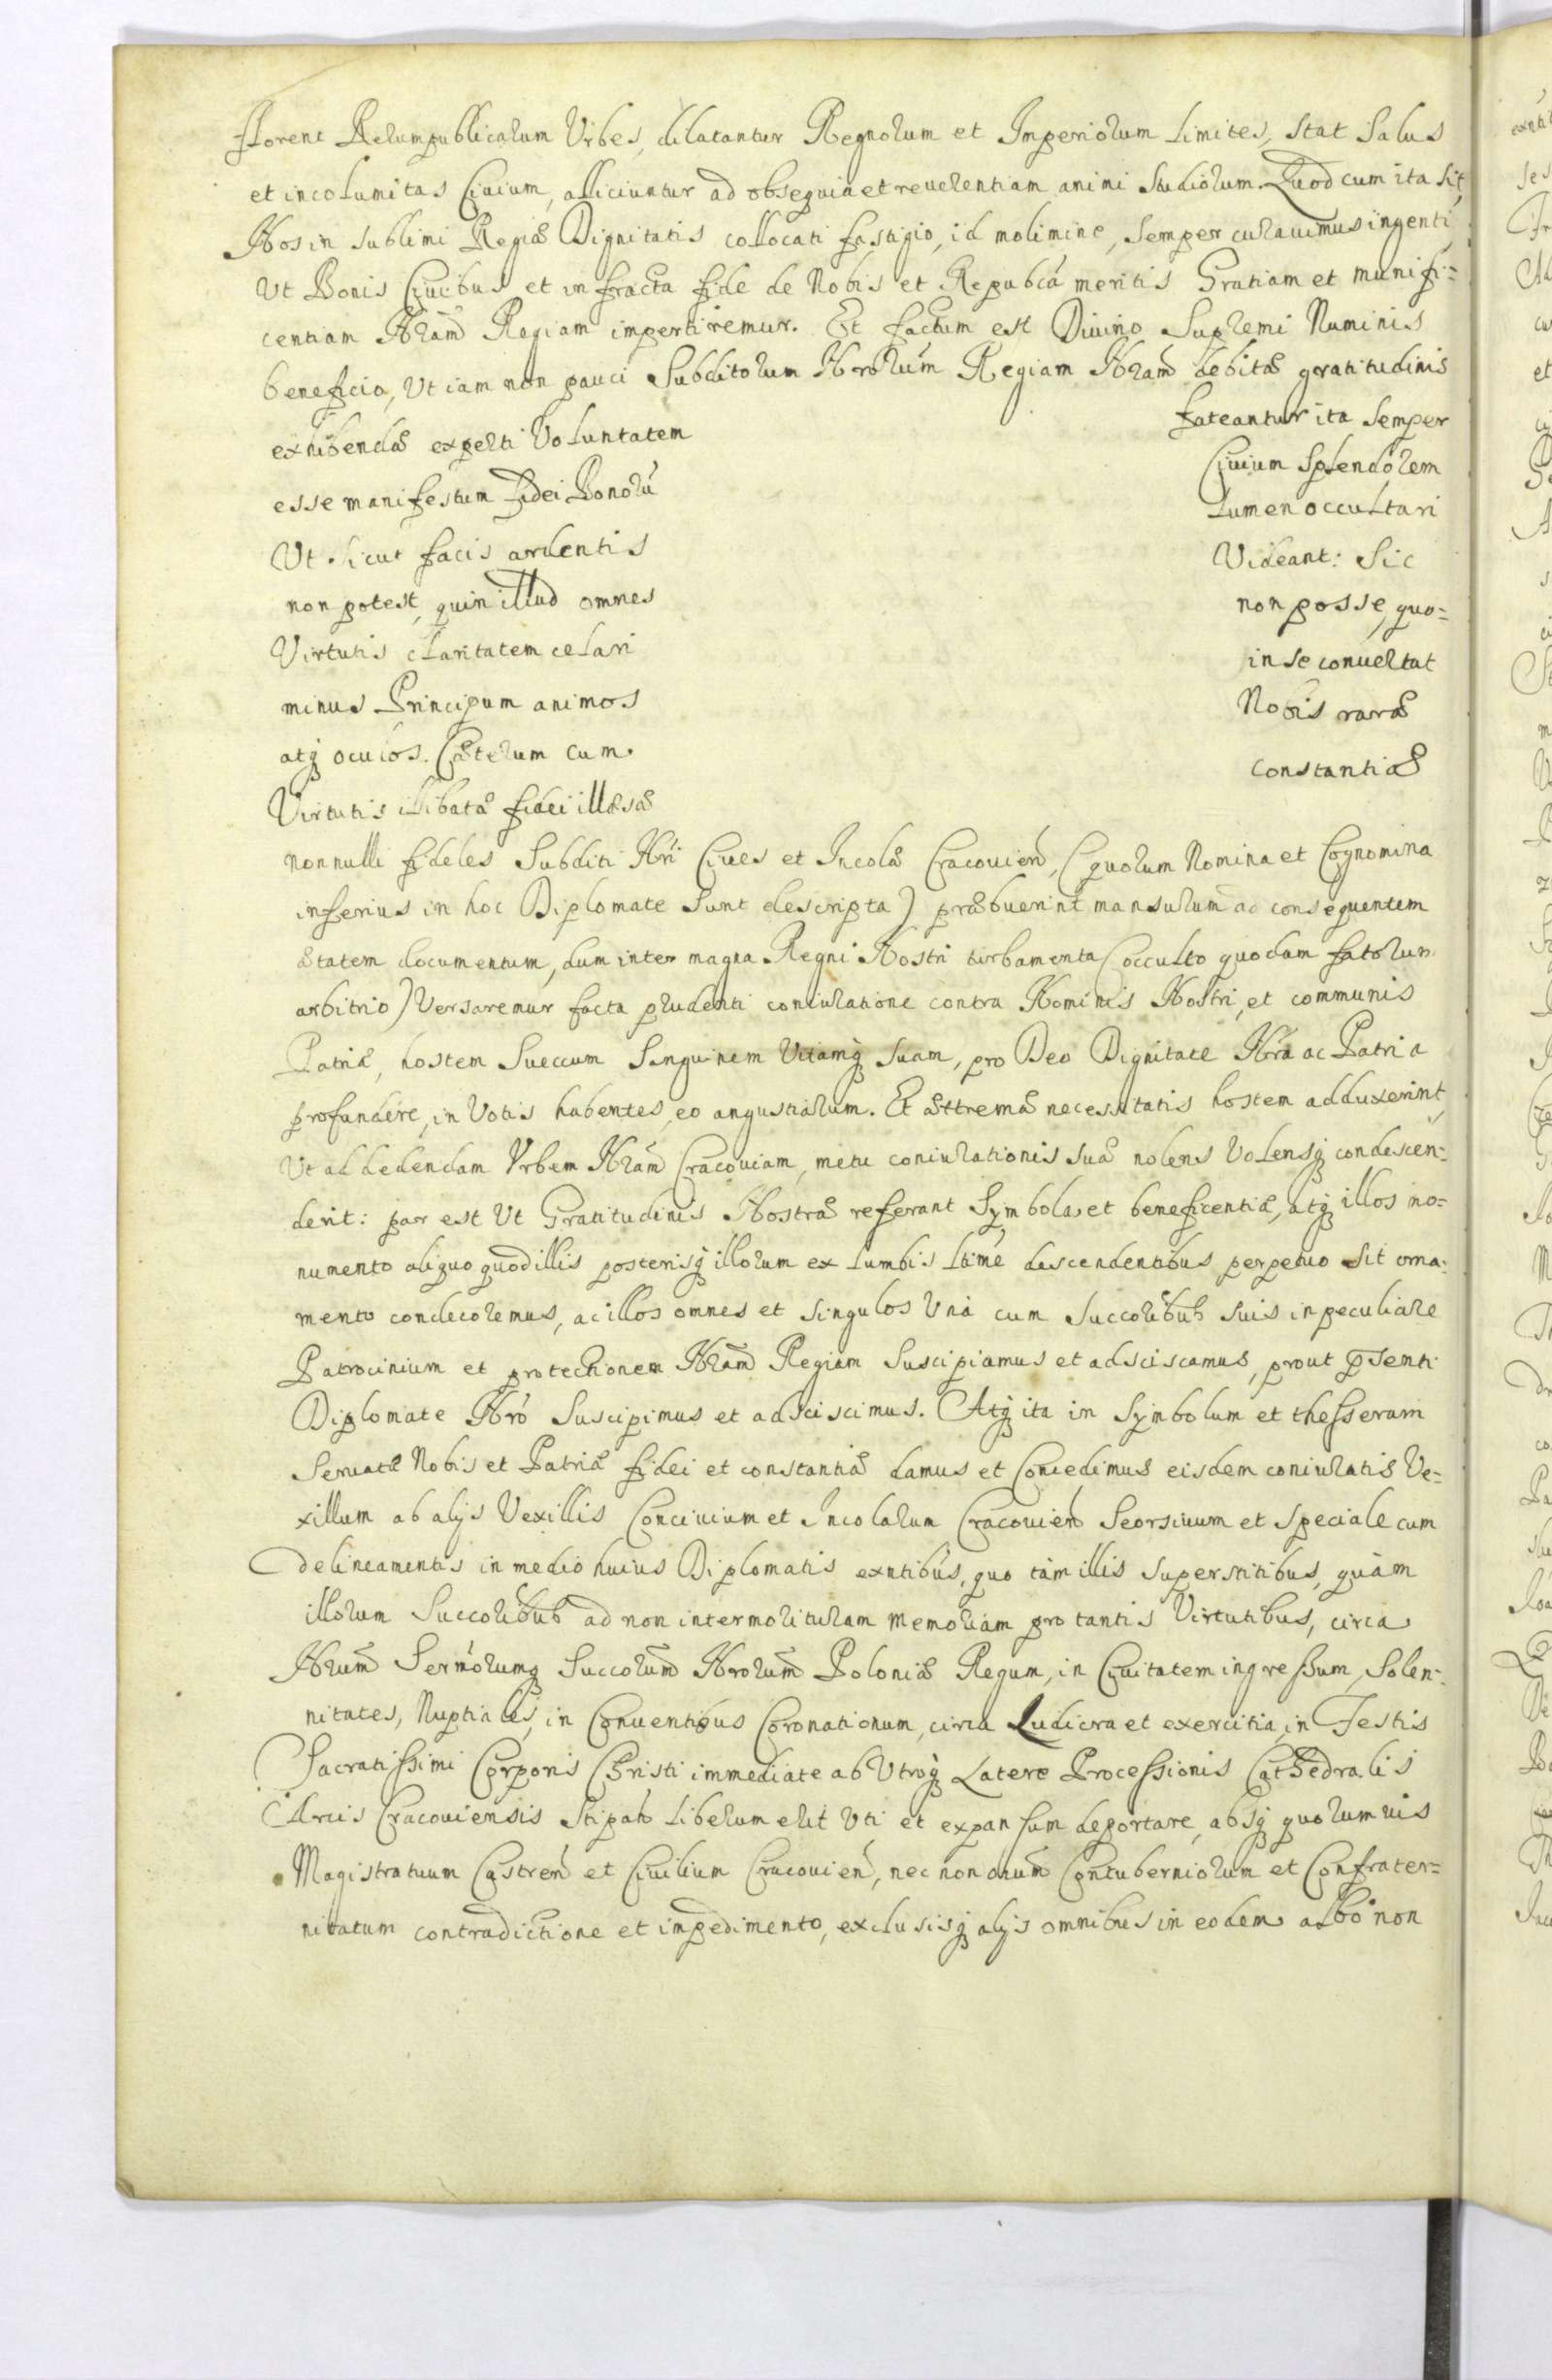 florent Rerumpublicarum Urbes, dilatantur Regnorum et Imperiorum limites, stat salus
et incolumitas Civium, alliciuntur ad obsequia et reverentiam animi studiorum. Quod cum ita sit,
Nos in sublimi Regiæ Dignitatis collocati fastigio, id molimine, semper curavimus ingenti,
Ut Bonis Civibus et infracta fide de Nobis et Republcā meritis Gratiam et munifi=
centiam Nr̄am Regiam impertiremur. Et factum est Divino Supremi Numinis
beneficio, Ut iam non pauci Subditorum Nrōrum Regiam Nr̄am debitæ gratitudinis
exhibendæ experti Voluntatem fateantur ita semper
esse manifestum fidei Bonorū Civium splendorem
Ut sicut facis ardentis lumen occultari
non potest, quin illud omnes Videant: Sic
Virtutis claritatem celari non posse, quo=
minus Principum animos in se convertat
atq; oculos. Cæterum cum Nobis raræ
Virtutis illibatæ fidei illæsæ constantiæ
nonnulli fideles Subditi Nrī Cives et Incolæ Cracovień, (quorum Nomina et Cognomina
inferius in hoc Diplomate sunt descripta) præbuerint mansurum ad consequentem
ætatem documentum, dum inter magna Regni Nostri turbamenta (occulto quodam fatorum
arbitrio) Versaremur facta prudenti coniuratione contra Nominis Nostri, et communis
Patriæ, hostem Sueccum Sanguinem Vitamq; suam, pro Deo Dignitate Nrā ac Patria
profundere, in Votis habentes, eo angustiarum. Et æxtremæ necessitatis hostem adduxerint,
Ut ad dedendam Urbem Nr̄am Cracoviam, metu coniurationis suæ nolens Volensq; condescen=
derit: par est Ut Gratitudinis Nostræ referant Symbola, et beneficentiæ, atq; illos mo=
numento aliquo quod illis posterisq; illorum ex lumbis ltīme descendentibus perpetuo sit orna=
mento condecoremus, ac illos omnes et singulos Unà cum Succoribus suis in peculiare
Patrocinium et protectionem Nr̄am Regiam suscipiamus et adsciscamus, prout p̄senti
Diplomate Nrō Suscipimus et adsciscimus. Atq; ita in Symbolum et thesseram
Servatæ Nobis et Patriæ fidei et constantiæ damus et Concedimus eisdem coniuratis Ve=
xillum ab alijs Vexillis Concivium et Incolarum Cracovień Seorsivum et Speciale cum
delineamentis in medio huius Diplomatis exntibus, quo tàm illis superstitibus, quàm
illorum Succoribus ad non intermorituram memoriam pro tantis Virtutibus, circa
Nr̄um Sermōrumq; Succorum Nrōrum Poloniæ Regum, in Civitatem ingressum, Solen=
nitates, Nuptiales, in Conventibus Coronationum, circa Ludicra et exercitia, in Festis
Sacratissimi Corporis Christi immediate ab Utroq; Latere Processionis Cathedralis
Arcis Cracoviensis Stipato liberum erit Uti et expansum deportare, absq; quorumvis
Magistratuum Castreń et Civilium Cracovień, nec non oniūm Contuberniorum et Confrater=
nitatum contradictione et impedimento, exclusisq; alijs omnibus in eodem albo non